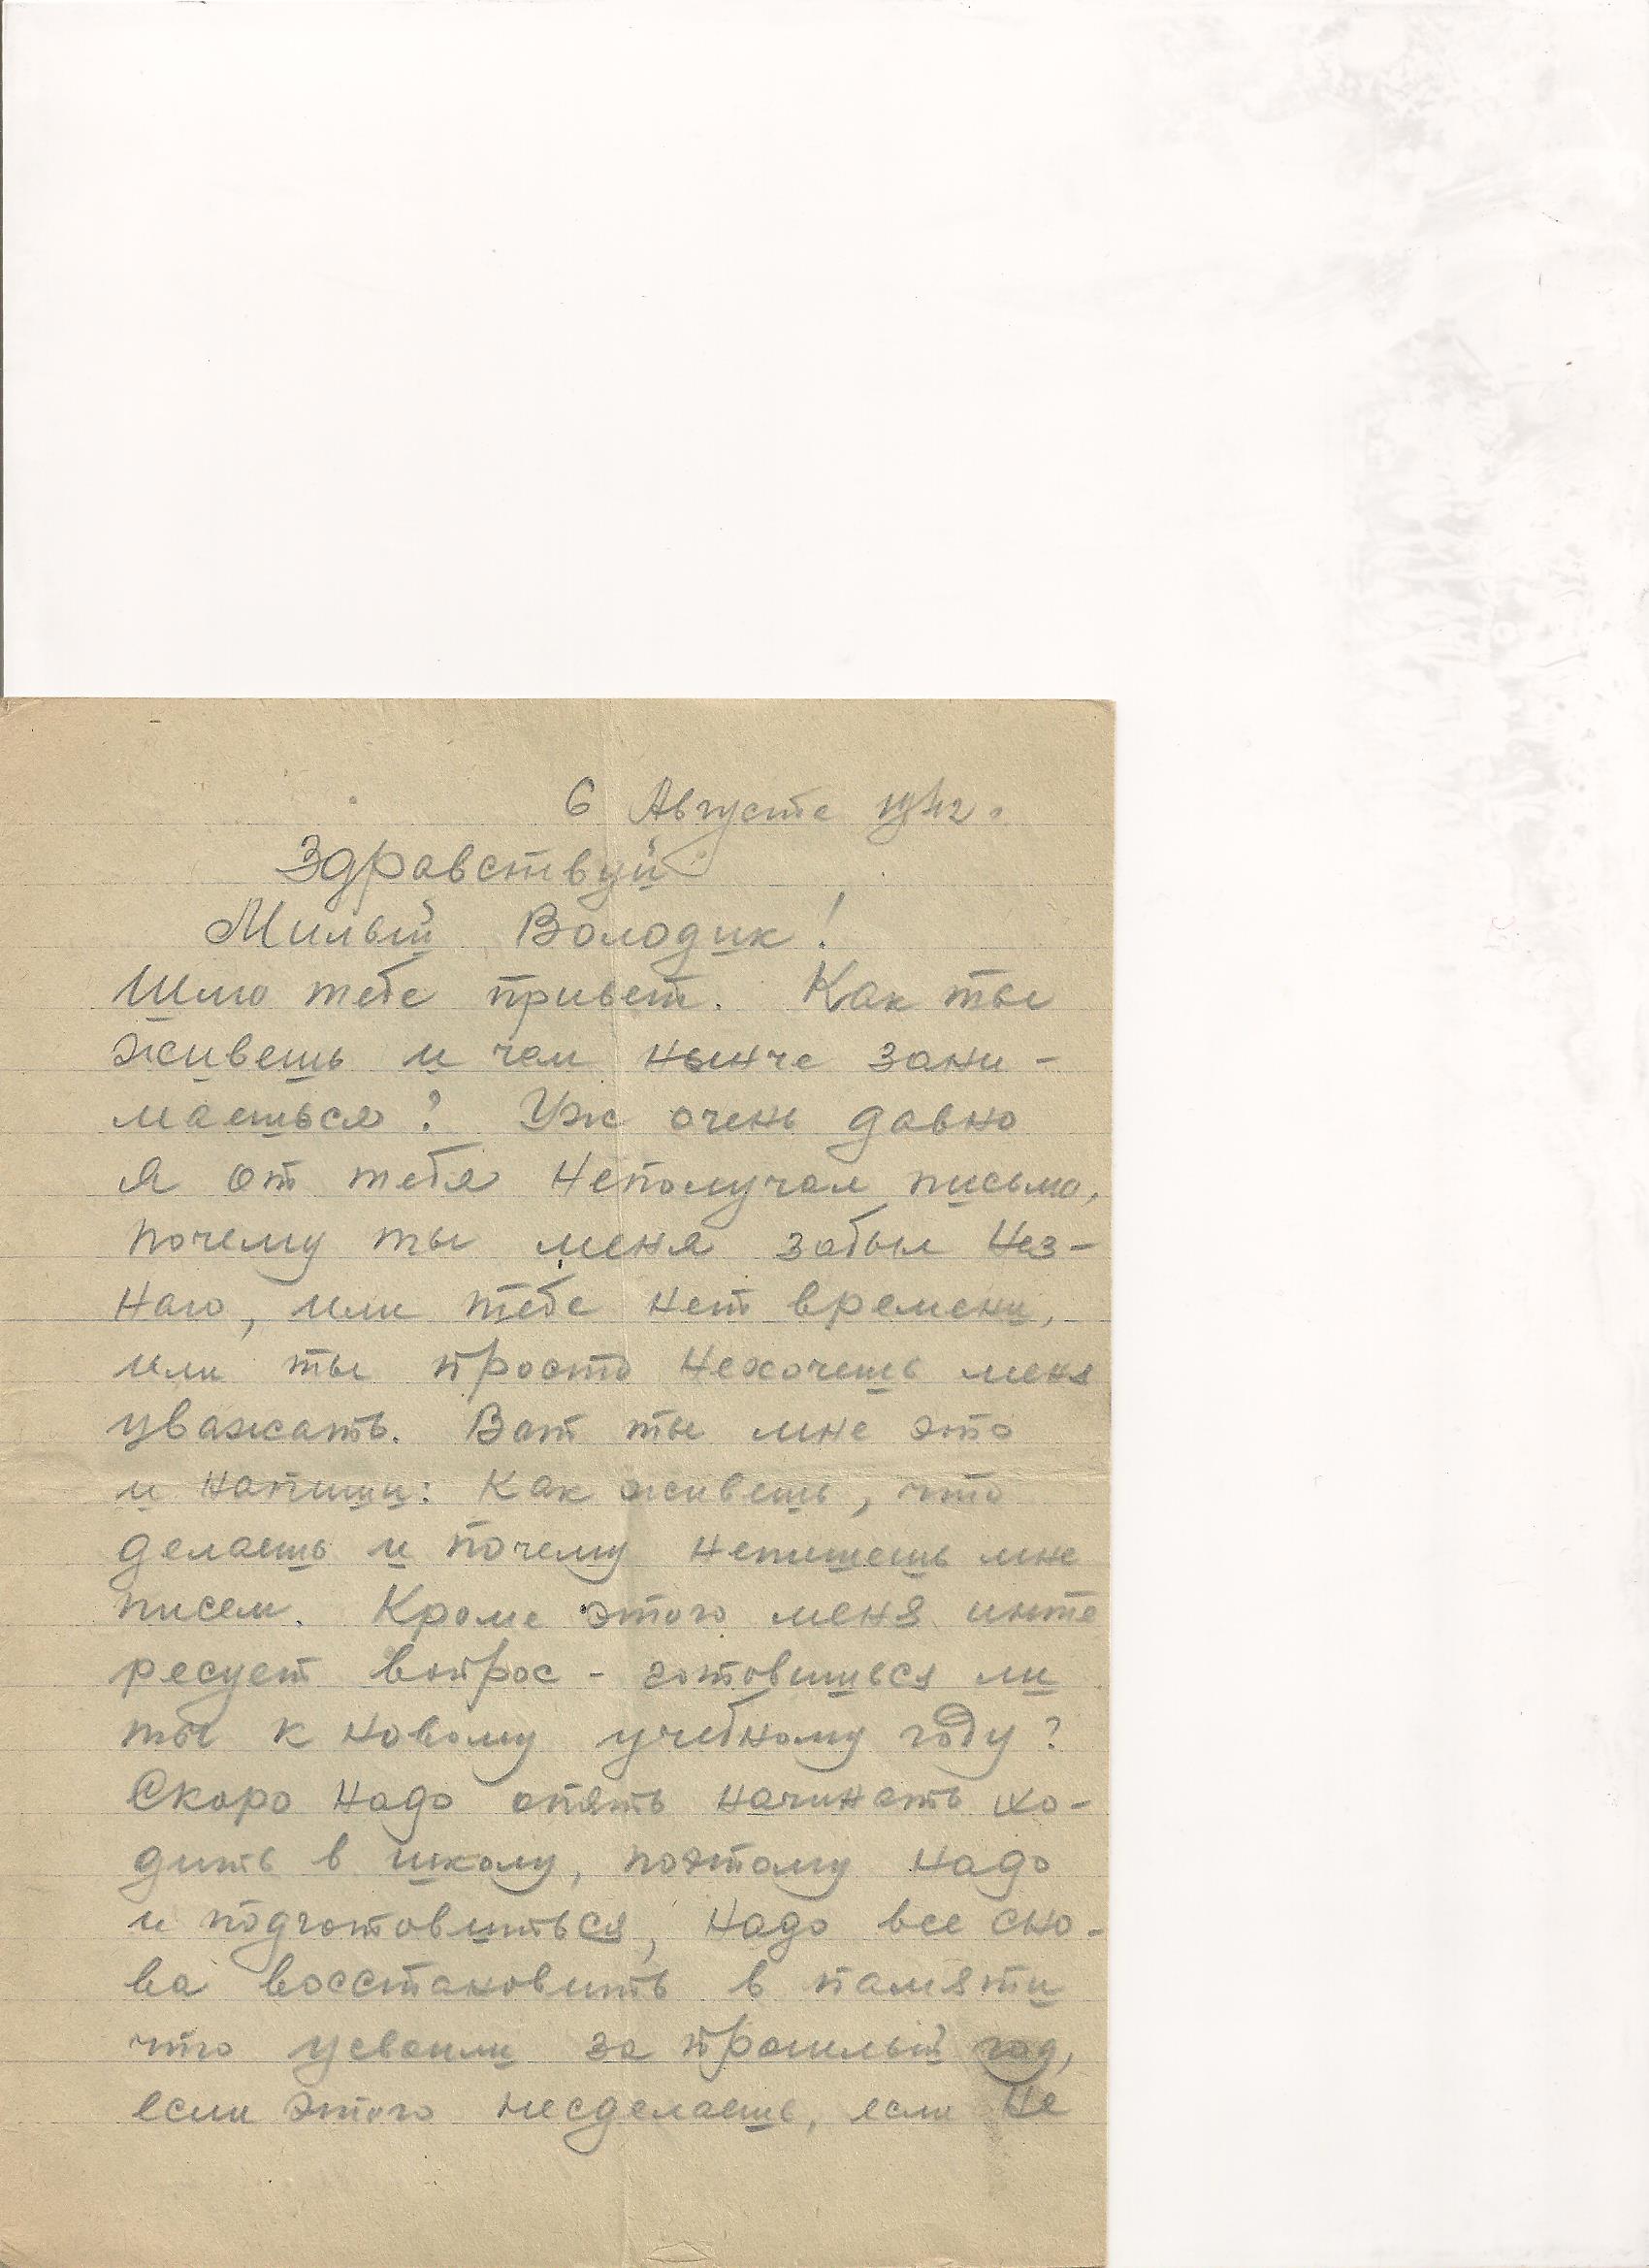 6 Августа 1942 г.
Здравствуй
Милый Володик!
Шлю тебе привет. Как ты
живешь и чем нынче зани-
маешься? Уж очень давно
я от тебя неполучал письма,
почему ты меня забыл нез-
наю, или тебе нет времени,
или ты просто нехочешь меня
уважать. Вот ты мне это
и напиши: Как живешь, что
делаешь и почему непишешь мне
писем. Кроме этого меня инте
ресует вопрос - готовишься ли
ты к новому учебному году?
Скоро надо опять начинать хо-
дить в школу, поэтому надо
и подготовиться, надо все сно-
ва восстановить в памяти
что усвоили за прошлый год,
если этого несделаешь, если не